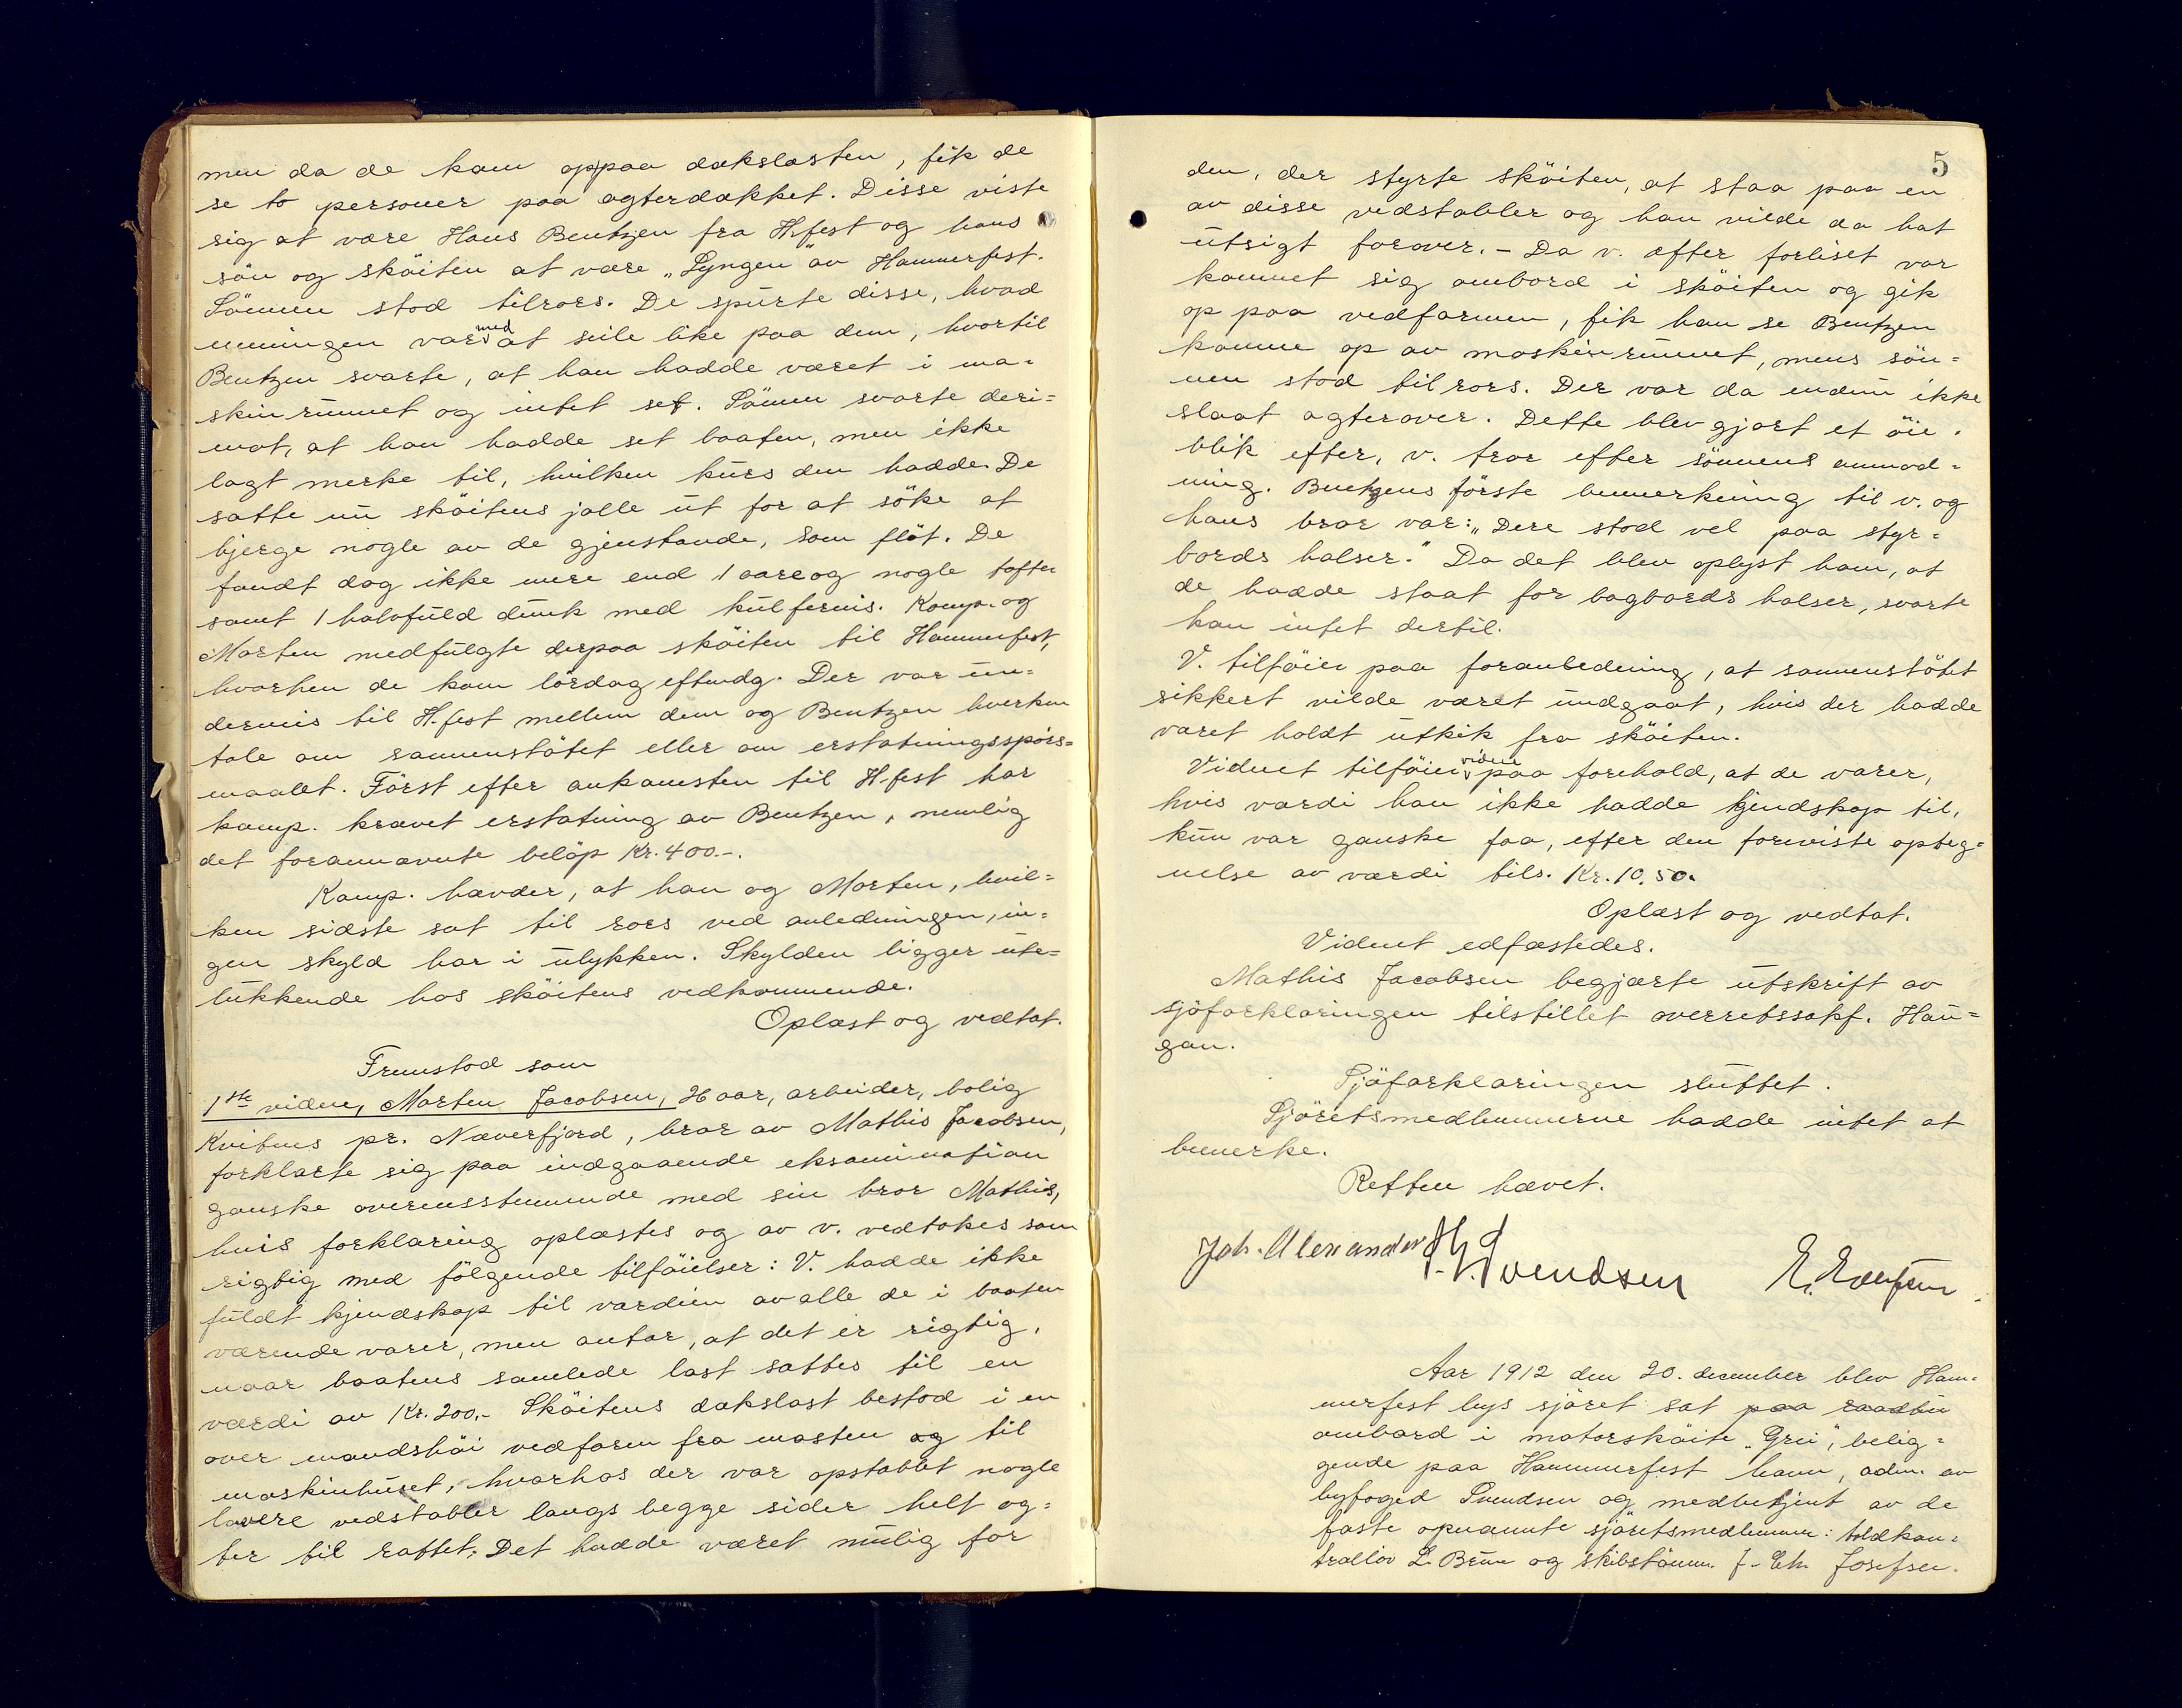 men da de kom oppaa dækslasten, fik de
se to personer paa agterdækket. Disse viste
sig at være Hans Bentzen fra H.fest og hans
sön og sköiten at være „Lyngen" av Hammerfest.
Sönnen stod tilrors. De spurte disse, hvad
meningen var med at seile like paa dem, hvortil
Bentzen svarte, at han hadde været i ma-
skinrummet og intet set. Sönnen svarte deri=
mot, at han hadde set baaten, men ikke
lagt merke til, hvilken kurs den hadde. De
satte nu sköitens jolle ut for at söke at
bjerge nogle av de gjenstande, som flöt. De
fandt dog ikke mere end 1 aare og nogle tofter
samt 1 halvfuld dunk med kulfernis. Komp. og
Morten medfulgte derpaa sköiten til Hammerfest,
hvorhen de kom lördag eftmdg. Der var un=
derveis til H.fest mellem dem og Bentzen hverken
tale om sammenstötet eller om erstatningsspörs=
maalet. Först efter ankomsten til H.fest har
komp. krævet erstatning av Bentzen, nemlig
det forannævnte belöp Kr. 400.-.
Komp. hævder, at han og Morten, hvil=
ken sidste sat til rors ved anledningen, in=
gen skyld har i ulykken. Skylden ligger ute=
lukkende hos sköitens vedkommende.
Oplæst og vedtat.
Fremstod som
1ste vidne, Morten Jacobsen, 26 aar, arbeider, bolig
Kvitnes pr. Næverfjord, bror av Mathis Jacobsen,
forklarte sig paa indgaaende eksamination
ganske overensstemmende med sin bror Mathis,
hvis forklaring oplæstes og av v. vedtokes som
rigtig med fölgende tilföielser: V. hadde ikke
fuldt kjendskap til værdien av alle de i baaten
værende varer, men antar, at det er rigtig,
naar baatens samlede last sættes til en
værdi av Kr. 200.- Sköitens dækslast bestod i en
over mandshöi vedfavn fra masten og til
maskinhuset, hvorhos der var opstablet nogle
lavere vedstabler langs begge sider helt ag=
ter til rattet. Det hadde været mulig for
5
den, der styrte sköiten, at staa paa en
av disse vedstabler og han vilde da hat
utsigt forover. - Da v. efter forliset var
kommet sig ombord i sköiten og gik
op paa vedfavnen, fik han se Bentzen
komme op av maskinrummet, mens sön=
nen stod tilrors. Der var da endnu ikke
slaat agterover. Dette blev gjort et öie-
blik efter, v. tror efter sönnens anmod=
ning. Bentzens förste bemerkning til v. og
hans bror var: „Dere stod vel paa styr=
bords halser." Da det blev oplyst ham, at
de hadde staat for bagbords halser, svarte
han intet dertil.
V. tilföier paa foranledning, at sammenstötet
sikkert vilde været undgaat, hvis der hadde
været holdt utkik fra sköiten.
Vidnet tilföier videre paa forehold, at de varer,
hvis værdi han ikke hadde kjendskap til,
kun var ganske faa, efter den foreviste opteg=
nelse av værdi tils. Kr. 10.50.
Oplæst og vedtat.
Vidnet edfæstedes.
Mathis Jacobsen begjærte utskrift av
sjöforklaringen tilstillet overretssakf. Hau=
gan.
Sjöforklaringen sluttet.
Sjöretsmedlemmerne hadde intet at
bemerke.
Retten hævet.
Joh. Alexander Svendsen
Aar 1912 den 20. december blev Ham-
merfest bys sjöret sat paa raadhu
ombord i motorsköite „Grei", belig=
gende paa Hammerfest havn, adm. av
byfoged Svendsen og medbetjent av de
faste opnævnte sjöretsmedlemmer: toldkon=
trollör L. Brun og skibstömm. J. Chr. Josefsen.